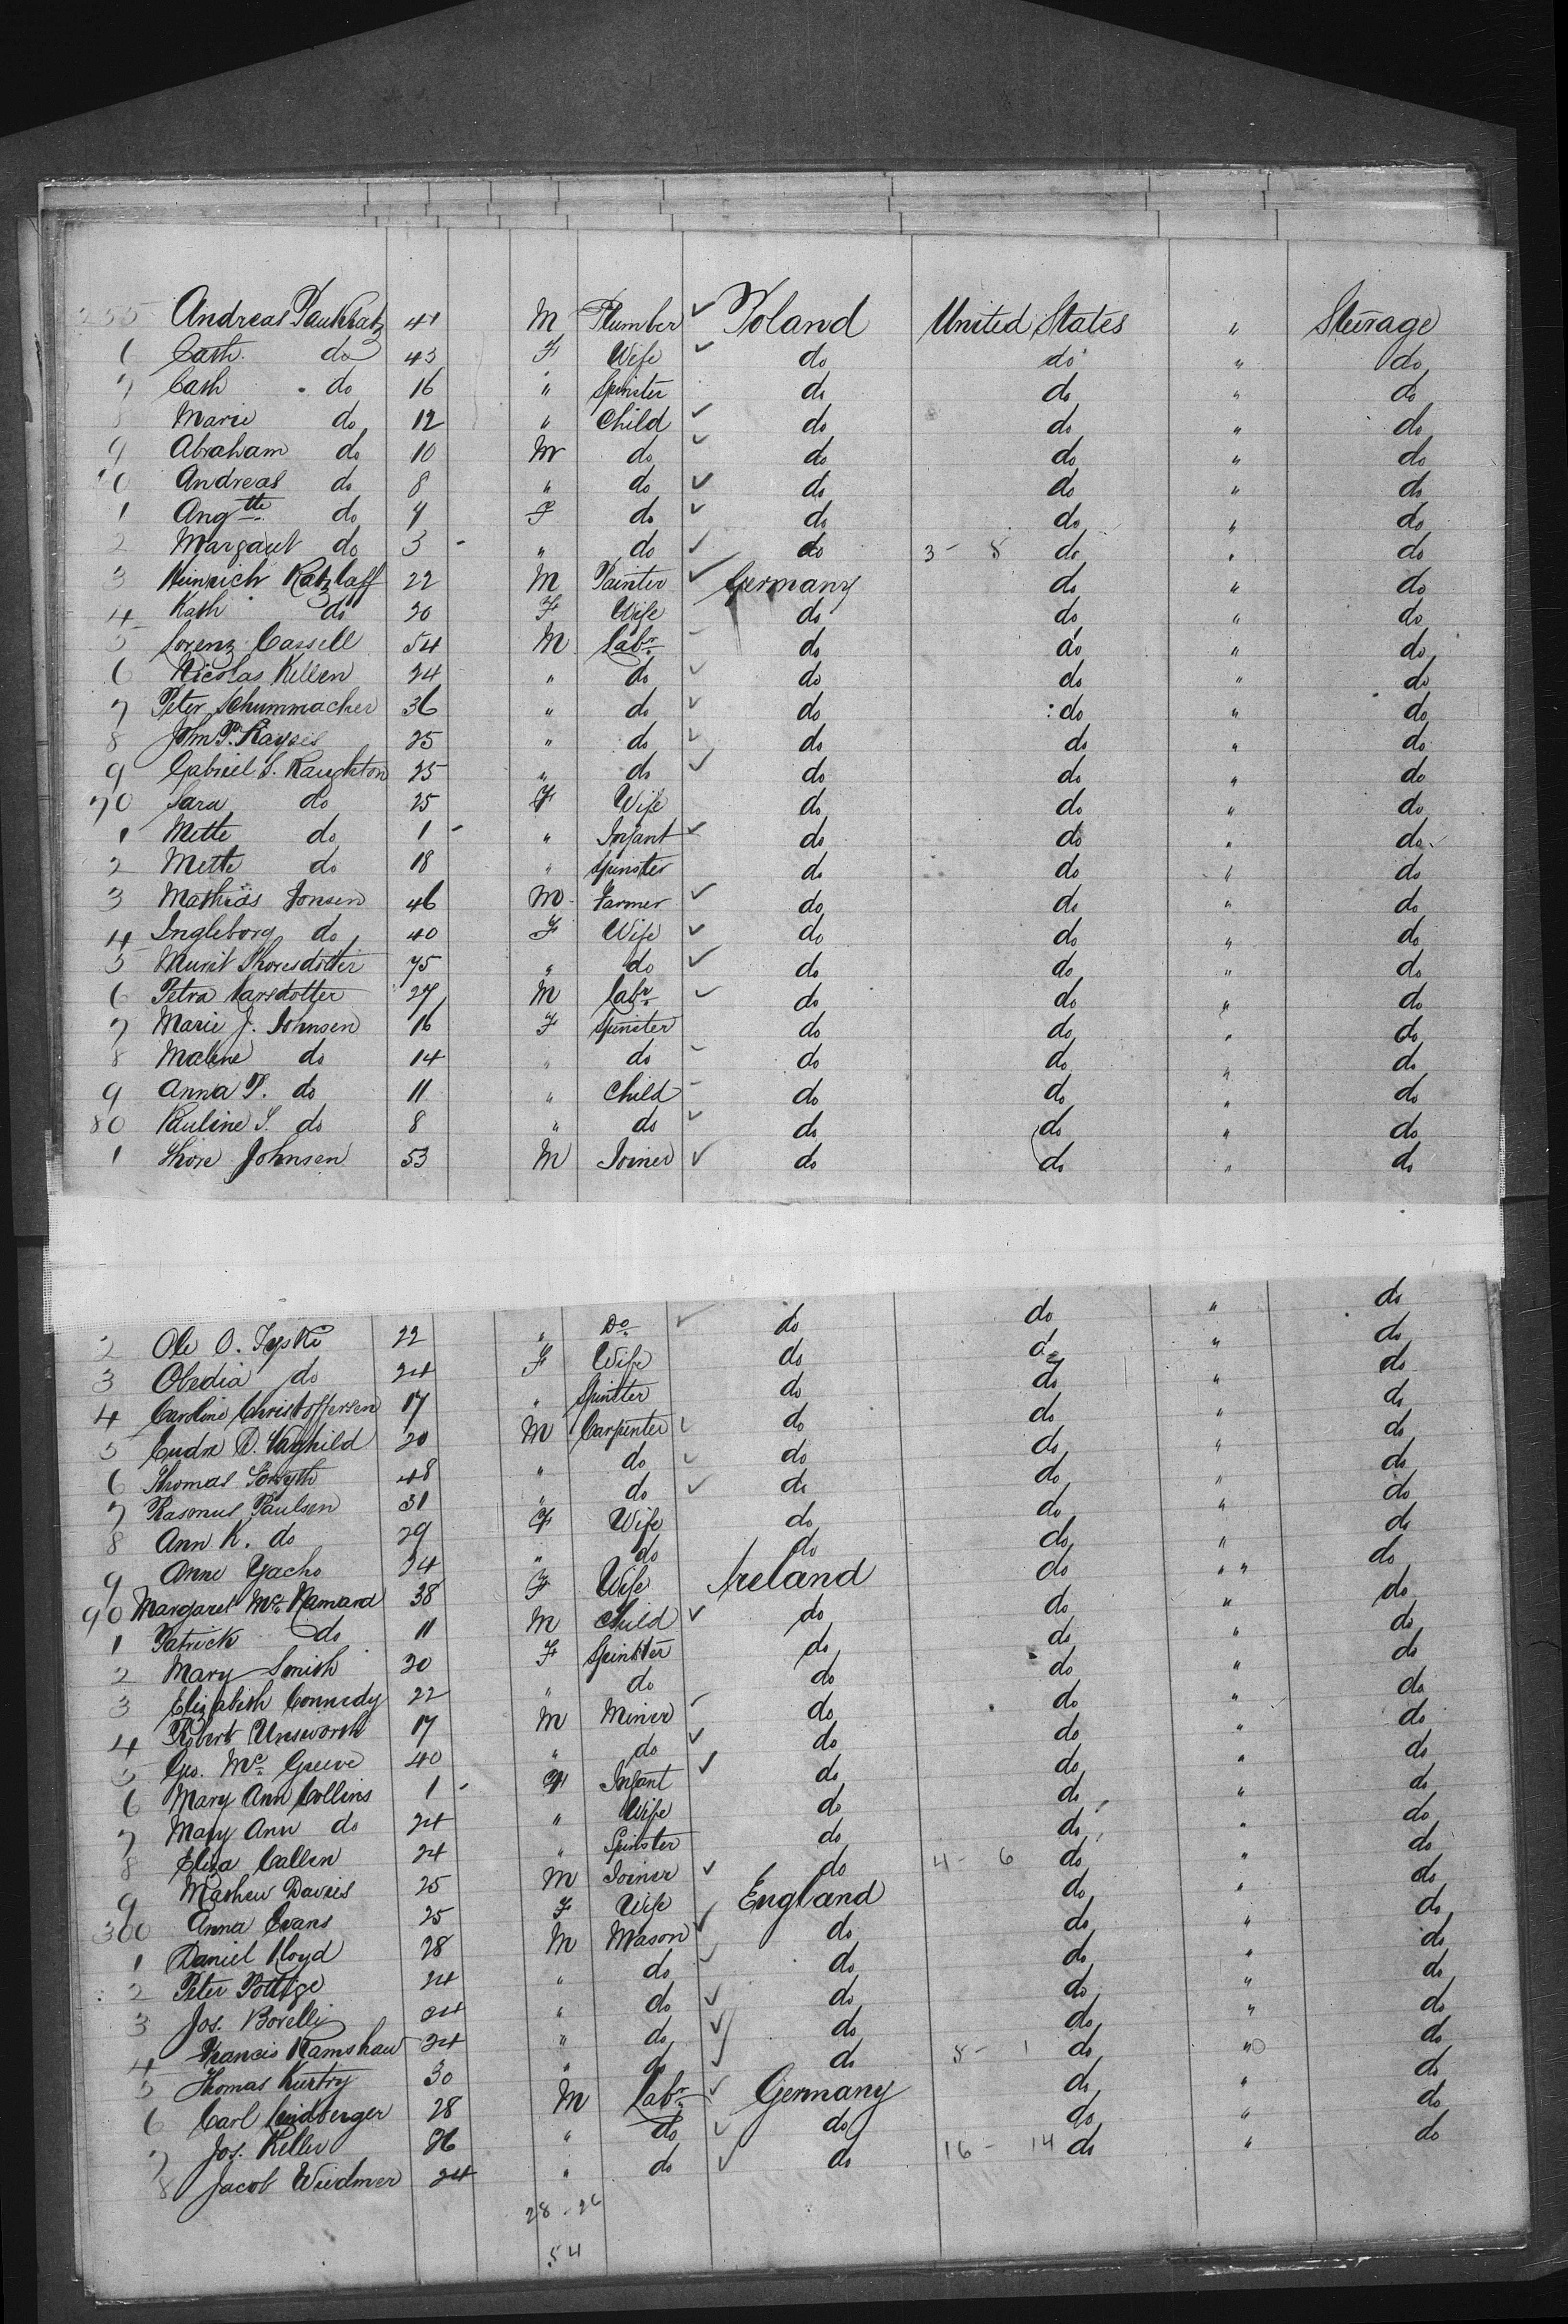 255 Andreas Pankratz 41 M Plumber ✓ Poland United States " Steerage
6 Cath. do 43 F Wife ✓ do do " do
7 Cath do 16 " Spinster do do " do
8 Marie do 12 " Child ✓ do do " do
9 Abraham do 10 M do ✓ do do " do
60 Andreas do 8 " do ✓ do do " do
1 Angtte do 7 F do ✓ do do " do
2 Margaret do 3 - " do ✓ do 3 - 5 do " do
3 Heinrich Ratzlaff 22 M Painter ✓ Germany do " do
4 Kath do 20 F Wife do do " do
5 Lorenz Cassell 54 M Labr - do do " do
6 Nicolas Killen 24 " do ✓ do do " do
7 Peter Schummacher 36 " do ✓ do do " do
8 John P. 25 " do ✓ do do " do
9 Gabriel S. Raughton 25 " do ✓ do do " do
70 Sara do 25 F Wife do do " do
1 Mette do 1 - " Infant ✓ do do " do
2 Mette do 18 " Spinster do do " do
3 Mathias Jonsen 46 M Farmer ✓ do do " do
4 Ingleborg do 40 F Wife ✓ do do " do
5 Murit Thoresdotter 75 " do ✓ do do " do
6 Petra Larsdotter 27 M Labr ✓ do do " do
7 Marie J. Johnsen 16 F Spinster do do " do
8 Malene do 14 " do - do do " do
9 Anna P. do 11 " Child - do do " do
80 Pauline S. do 8 " do ✓ do do " do
1 Thore Johnsen 53 M Joiner ✓ do do " do
2 Ole O. 22 " Do ✓ do do " do
3 Obedia do 24 F Wife do do " do
4 Caroline Christoffersen 17 " Spinster do do " do
5 D. 20 M Carpenter ✓ do do " do
6 Thomas Forsyth 48 " do ✓ do do " do
7 Rasmus Paulsen 31 " do ✓ do do " do
8 Ann K. do 29 F Wife do do " do
9 Anne Yacho 24 " do do do " do
90 Margaret Mc Namara 38 F Wife Ireland do " " do
1 Patrick do 11 M Child ✓ do do " do
2 Mary Smith 20 F Spinster do do " do
3 Elizabeth Connedy 22 " do do do " do
4 Robert Unsworth 17 M Miner ✓ do do " do
5 Geo. Mc Greeve 40 " do ✓ do do " do
6 Mary Ann Collins 1 - F Infant ✓ do do " do
7 Mary Ann do 24 " Wife do do " do
8 Eliza Callen 24 " Spinster do do " do
9 Mathew Davies 25 M Joiner ✓ do 4 - 6 do " do
300 Anna Evans 25 F Wife England do " do
1 Daniel Lloyd 28 M Mason ✓ do do " do
2 Peter Pottige 24 " do ✓ do do " do
3 Jos. Borelli 24 " do ✓ do do " do
4 Francis Ramshaw 24 " do ✓ do do " do
5 Thomas 30 " do ✓ do 5 - 1 do " do
6 Carl Lindberger 28 M Labr ✓ Germany do " do
7 Jos. Keller 26 " do ✓ do do " do
8 Jacob Wiedmer 24 " do ✓ do 16 - 14 do " do
28 - 26
54